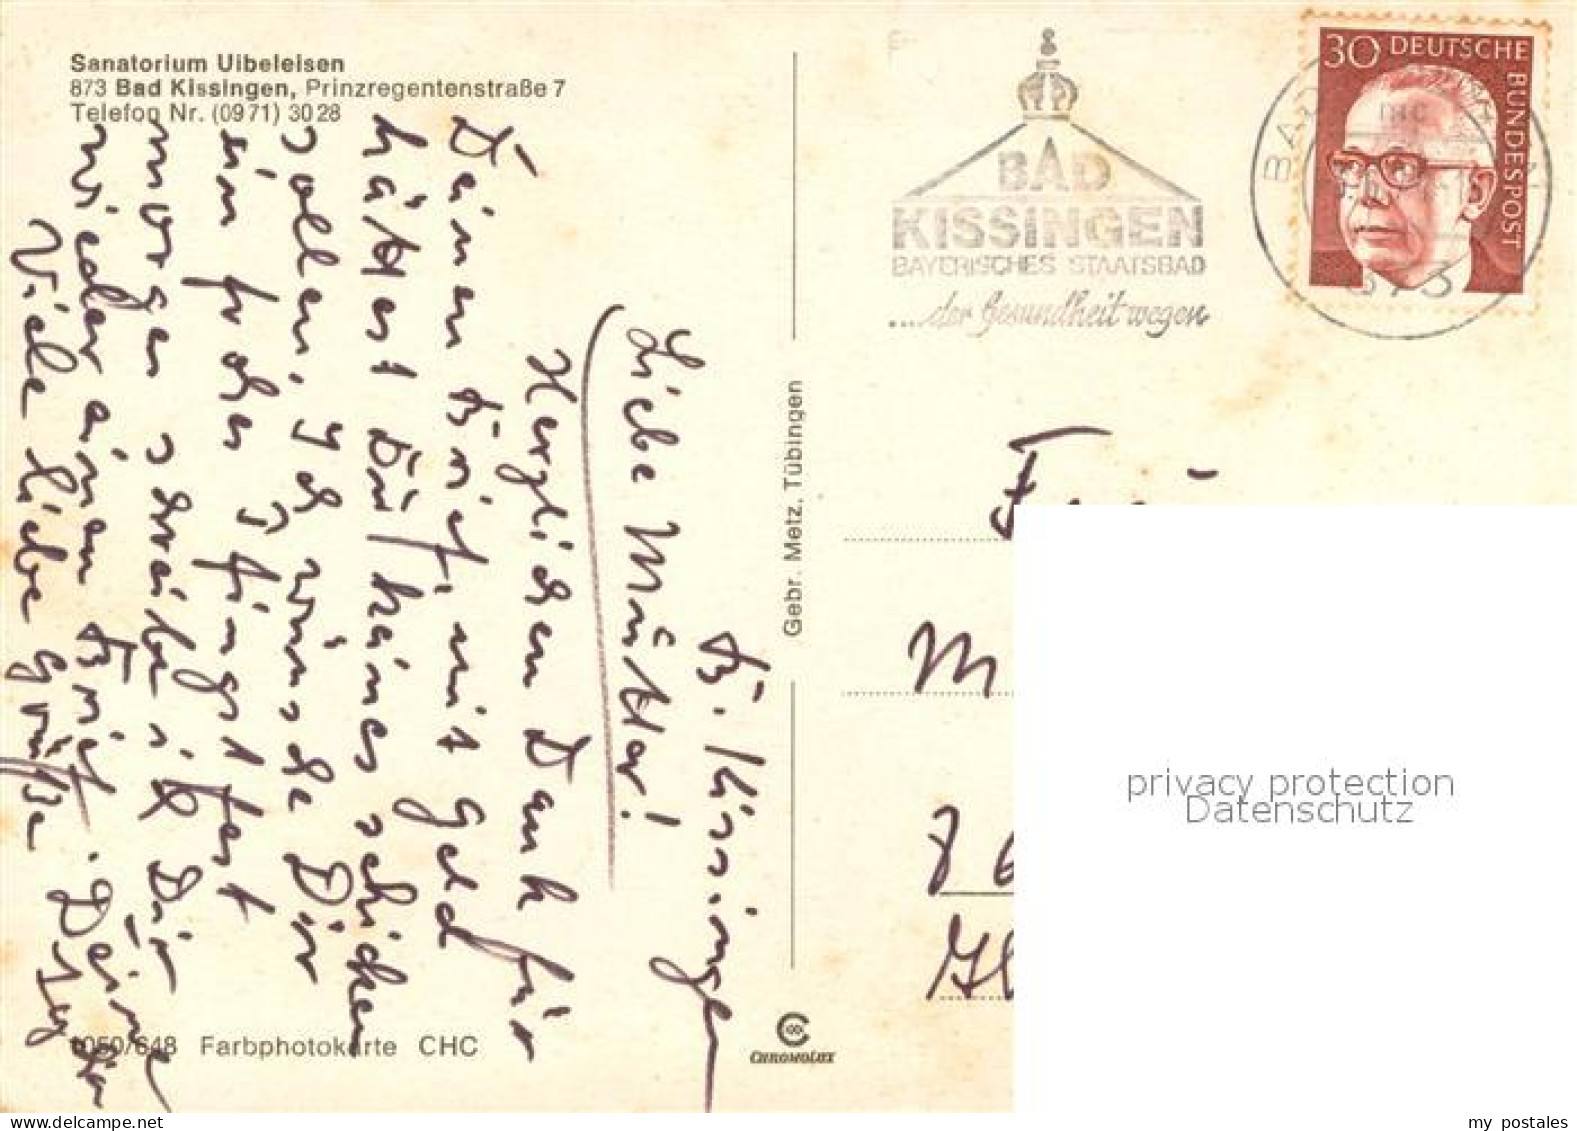 Sanatorium Uibeleisen
873 Bad Kissingen, Prinzregentenstraße 7
Telefon Nr. (0971) 3028
B. Kissingen
Liebe Mutter!
Herzlichen Dank für
Deinen Brief, mit Geld
hättest Du keines schicken
sollen. Ich wünsche Dir
ein frohes Pfingstfest
morgen schreibe ich Dir
wieder einen Brief.
Viele liebe Grüße Deine
1050/648 Farbphotokarte CHC
Gebr. Metz, Tübingen
CHROMOLUX
BAD
KISSINGEN
BAYERISCHES STAATSBAD
...der Gesundheit wegen
30 DEUTSCHE
BUNDESPOST
873
M
privacy protection
Datenschutz
my postales